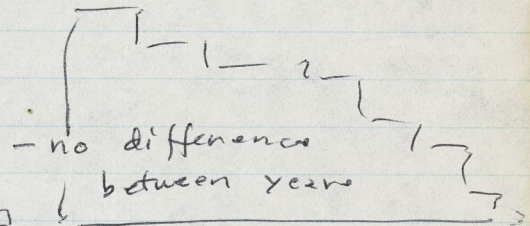 - no difference
between years